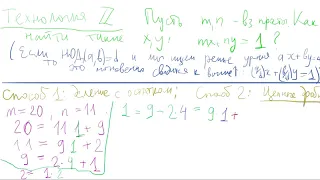 Технология ℤ Пусть m, n - вз. просты. Как
найти такие x, y: mx + ny = 1?
(Если НОД(a,b)=d, и мы ищем реше уравн ax+by=d,
то это мгновенно сводится к выше: (a/d)x+(b/d)y=1)
Способ 1: Деление с остатком; Способ 2: Цепные дроб
m=20, n=11
20 = 11·1 + 9
11 = 9·1 + 2
9 = 2·4 + 1
2 = 1·2
1 = 9 - 2·4 = 9·1 +